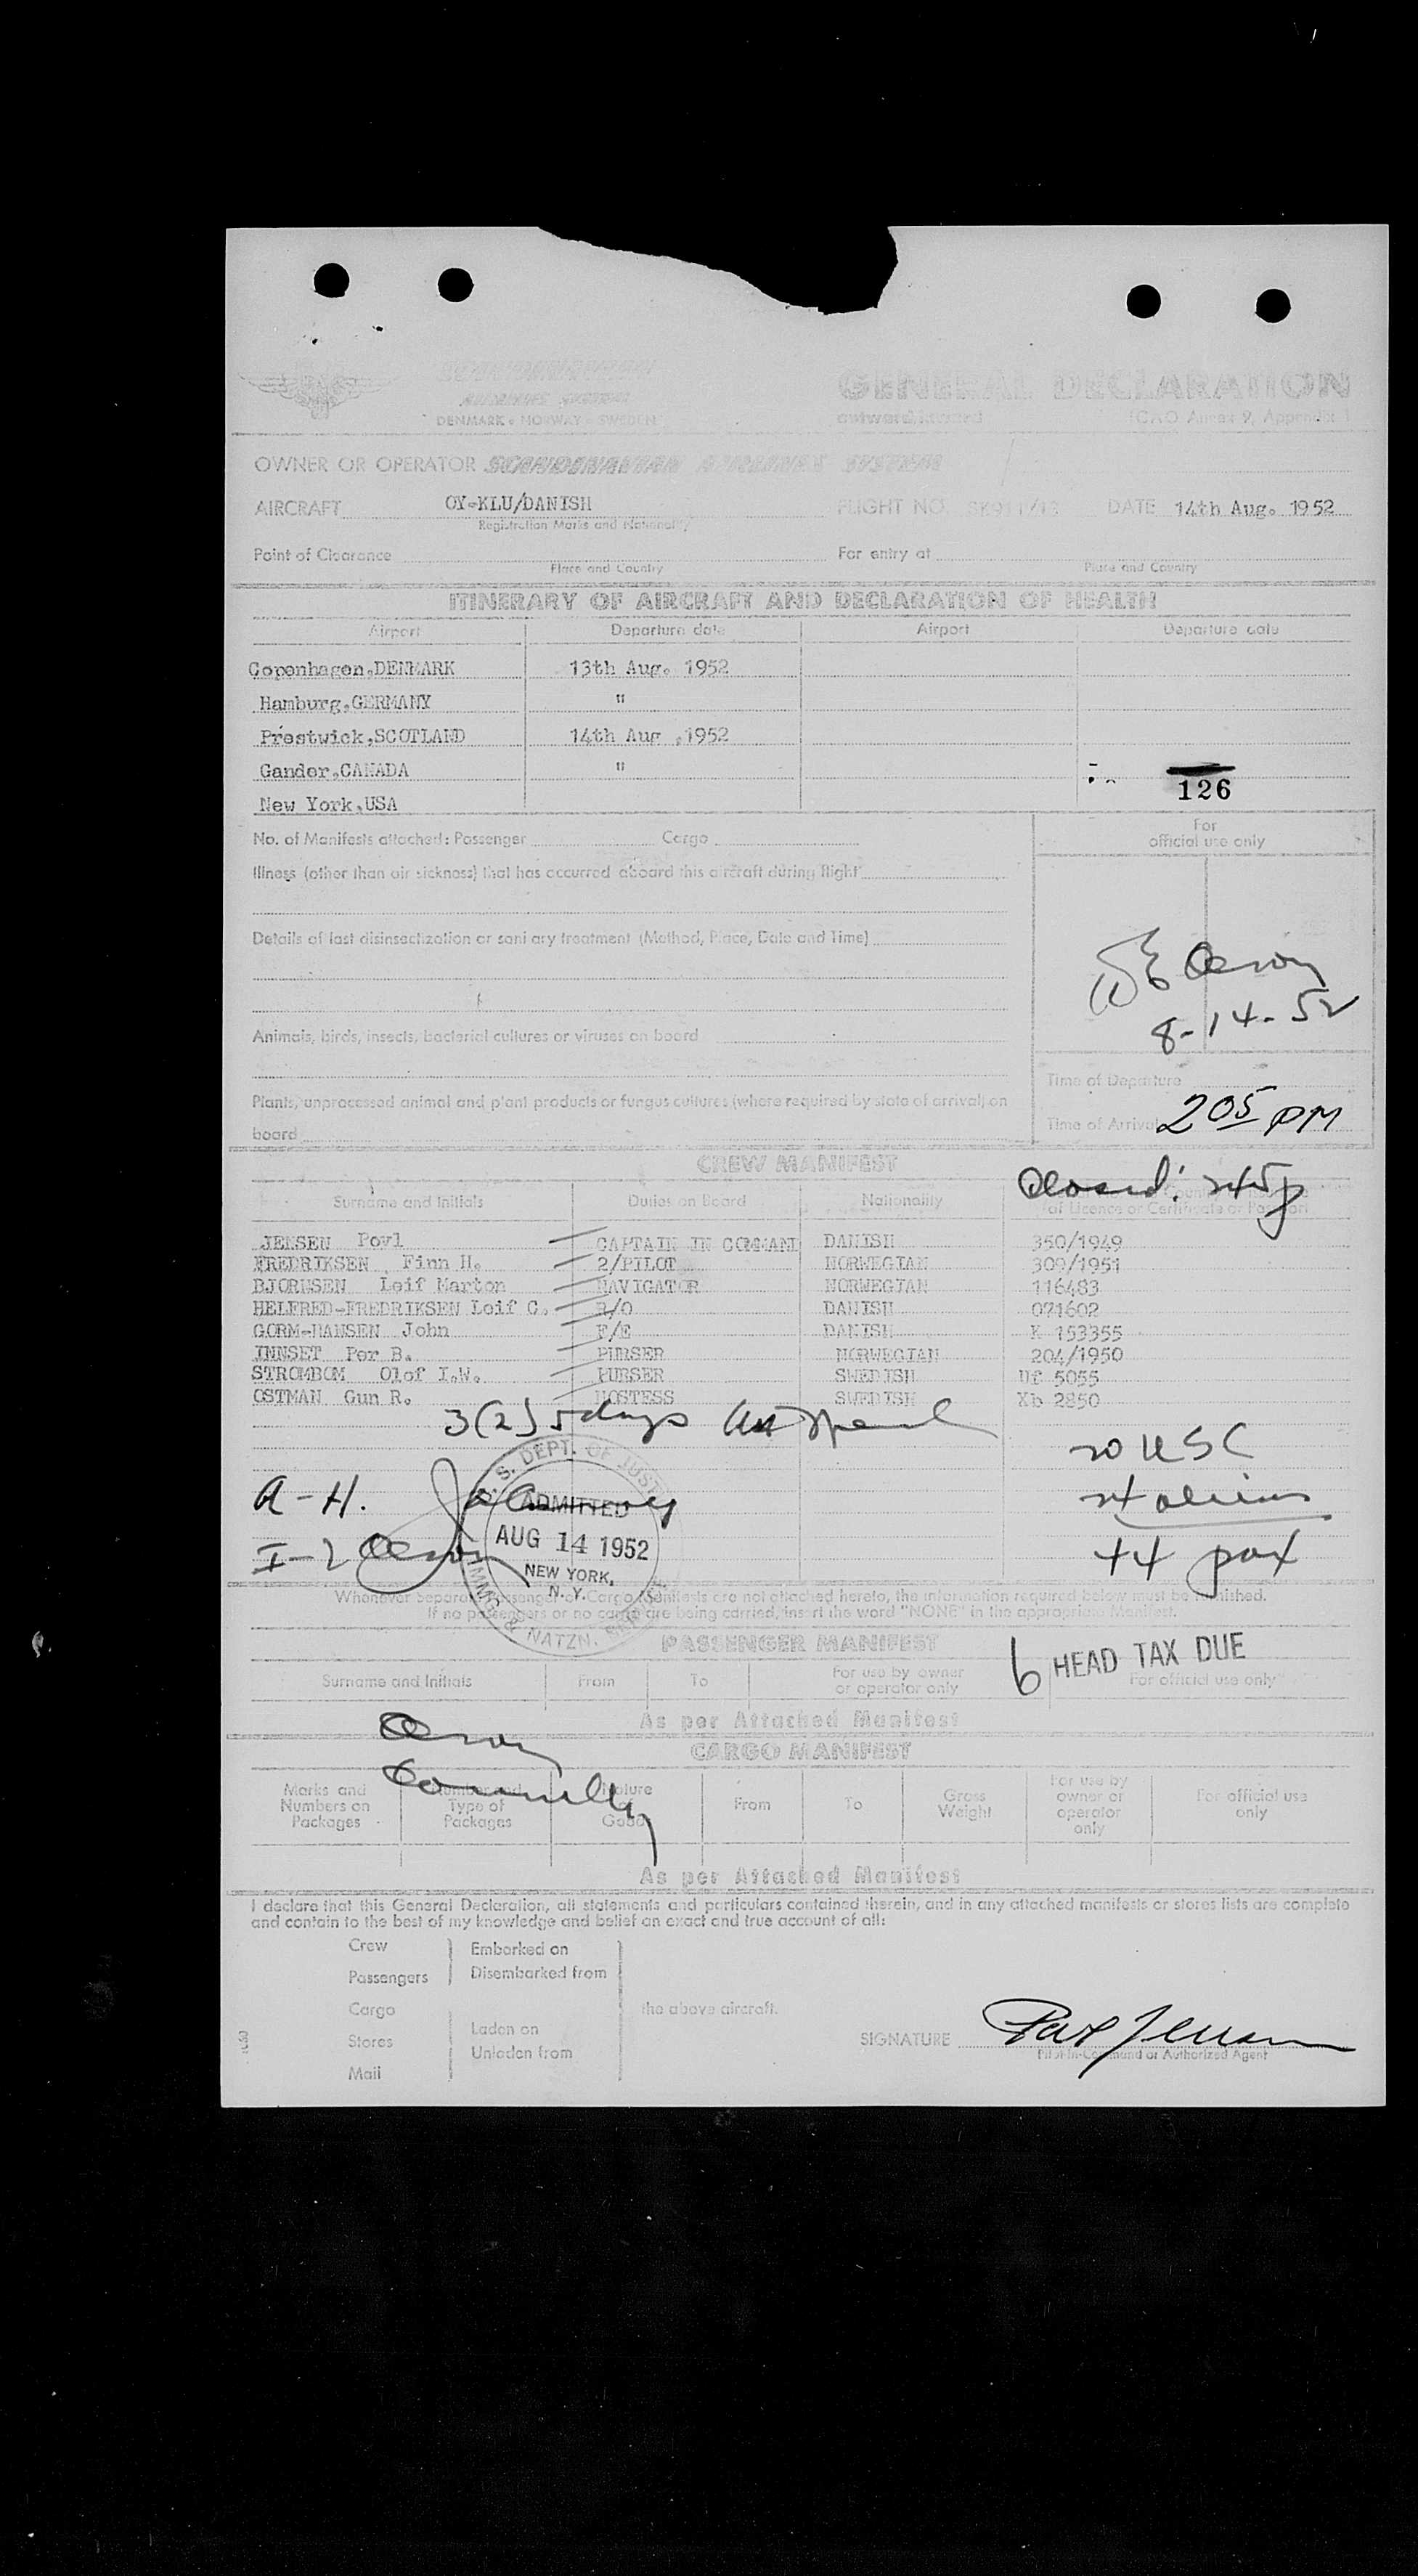 SCANDINAVIAN
AIRLINES SYSTEM
DENMARK • NORWAY • SWEDEN
GENERAL DECLARATION
outward/inward
(ICAO Annex 9, Appendix 1
OWNER OR OPERATOR SCANDINAVIAN AIRLINES SYSTEM
AIRCRAFT OY-KLU/DANISH FLIGHT NO. SK911/13 DATE 14th Aug. 1952
Registration Marks and Nationality
Point of Clearance For entry at
Place and Country Place and Country
ITINERARY OF AIRCRAFT AND DECLARATION OF HEALTH
Airport Departure date Airport Departure date
Copenhagen,DENMARK 13th Aug. 1952
Hamburg,GERMANY "
Prestwick,SCOTLAND 14th Aug ,1952
Gander,CANADA "
126
New York,USA
No. of Manifests attached: Passenger Cargo
For
official use only
Illness (other than air sickness) that has occurred aboard this aircraft during flight
Details of last disinsectization or sanitary treatment (Method, Place, Date and Time)
8-14-52
Animals, birds, insects, bacterial cultures or viruses on board
Time of Departure
Plants, unprocessed animal and plant products or fungus cultures (where required by state of arrival) on
board
Time of Arrival 2 05 PM
CREW MANIFEST
Closed: 245p
Surname and Initials Duties on Board Nationality of Licence or Certificate or Passport
JENSEN Povl CAPTAIN IN COMMAND DANISH 350/1949
FREDRIKSEN Finn H. 2/PILOT NORWEGIAN 309/1951
BJORNSEN Leif Marton NAVIGATOR NORWEGIAN 116483
HELFRED-FREDRIKSEN Leif C. R/O DANISH 071602
GORM-HANSEN John F/E DANISH K 153355
INNSET Per B. PURSER NORWEGIAN 204/1950
STROMBOM Olof I.W. PURSER SWEDISH Uf 5055
OSTMAN Gun R. HOSTESS SWEDISH Xb 2850
3(2) 5 days
20 USC
24 aliens
44 pax
A-H.
I-2
U. S. DEPT. OF JUSTICE
ADMITTED
AUG 14 1952
NEW YORK,
N. Y.
IMMG. & NATZN. SERVICE
Whenever separate Passenger or Cargo Manifests are not attached hereto, the information required below must be furnished.
If no passengers or no cargo are being carried, insert the word "NONE" in the appropriate Manifest.
PASSENGER MANIFEST
6 HEAD TAX DUE
Surname and Initials From To For use by owner or operator only For official use only
As per Attached Manifest
CARGO MANIFEST
Marks and Numbers on Packages Number and Type of Packages Nature of Goods From To Gross Weight For use by owner or operator only For official use only
Connelly
As per Attached Manifest
I declare that this General Declaration, all statements and particulars contained therein, and in any attached manifests or stores lists are complete
and contain to the best of my knowledge and belief an exact and true account of all:
Crew
Passengers
Embarked on
Disembarked from
Cargo
Stores
Mail
Laden on
Unladen from
the above aircraft.
SIGNATURE Povl Jensen
Pilot-in-Command or Authorized Agent